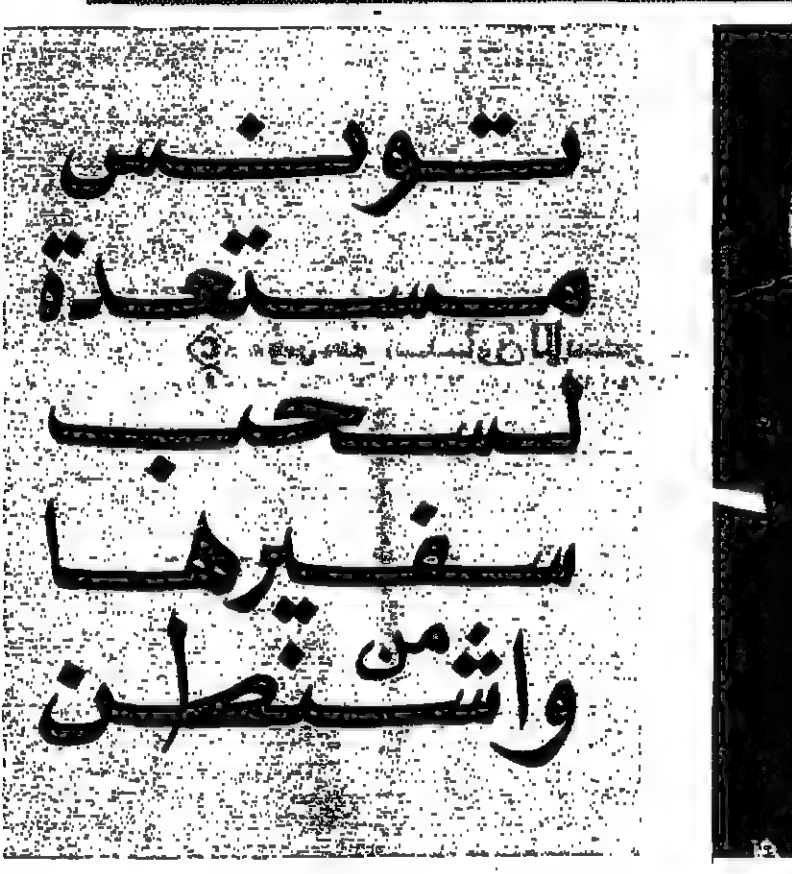 تونس
مستعدة
لسحب
سفيرها
من
واشنطن